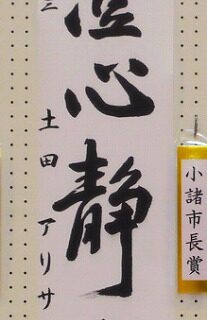 心静
三 土田アリサ
小諸市長賞